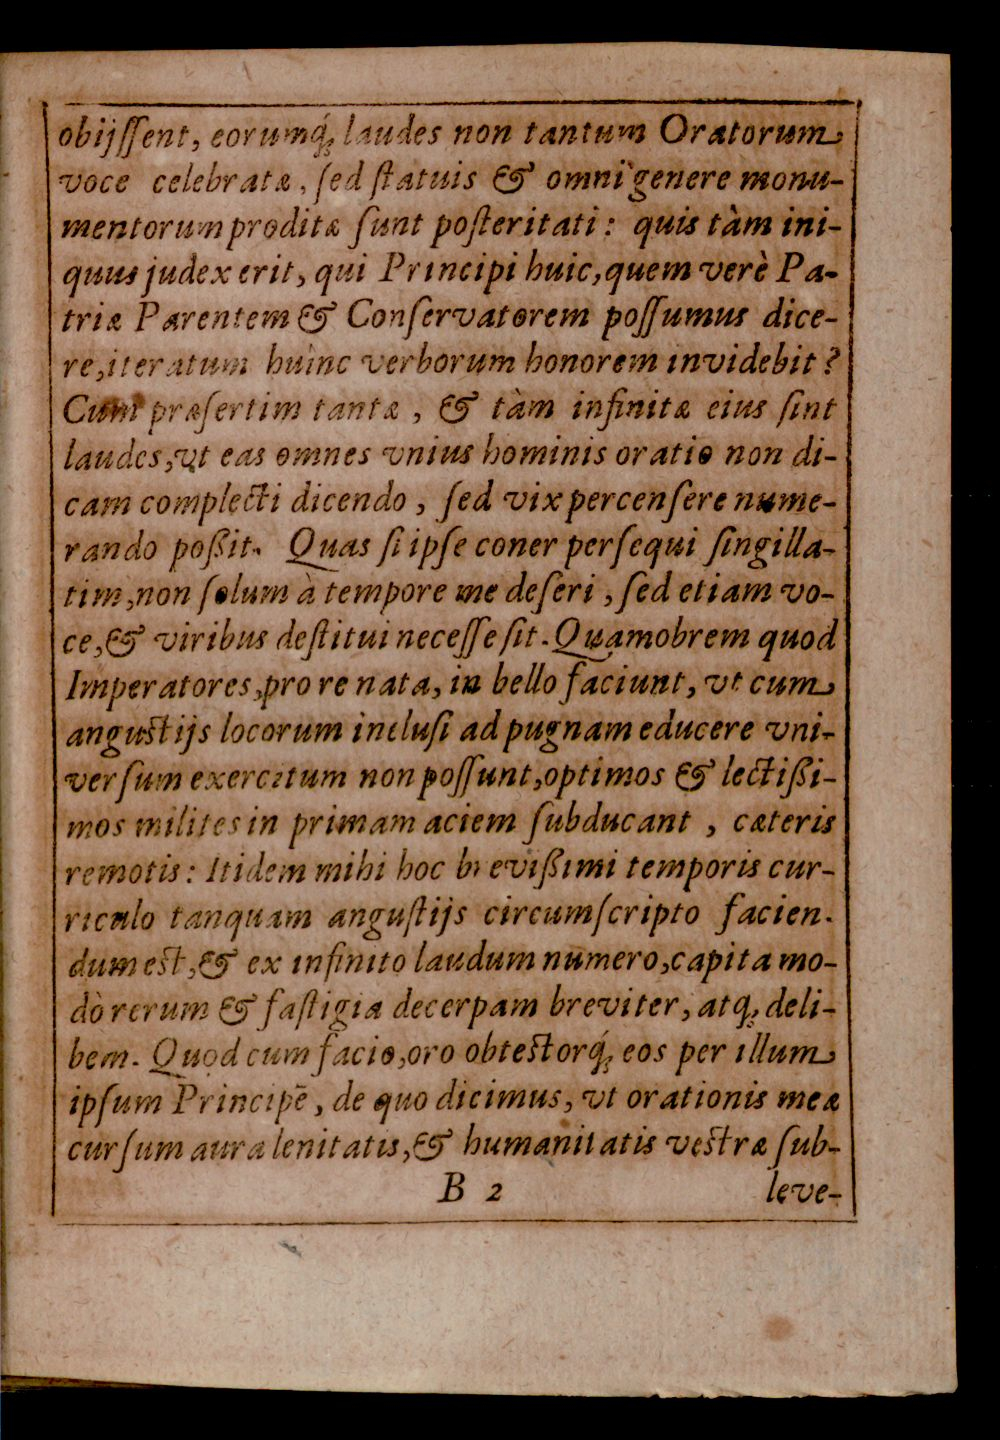 obijſſent, eorumq́; laudes non tantum Oratorum
voce celebratæ, ſed ſtatuis & omni genere monu-
mentorum proditæ ſunt poſteritati: quis tàm ini-
quus judex erit, qui Principi huic, quem verè Pa-
triæ Parentem & Conſervatorem poſſumus dice-
re, iteratum huinc verborum honorem invidebit?
Cum præſertim tantæ, & tàm infinitæ eius ſint
laudes, vt eas omnes vnius hominis oratio non di-
cam complecti dicendo, ſed vix percenſere nume-
rando poßit. Quas ſi ipſe coner perſequi ſingilla-
tim, non ſolum à tempore me deſeri, ſed etiam vo-
ce, & viribus deſtitui neceſſe ſit. Quamobrem quod
Imperatores, pro re nata, in bello faciunt, vt cum
anguſtijs locorum incluſi ad pugnam educere vni-
verſum exercitum non poſſunt, optimos & lectißi-
mos milites in primam aciem ſubducant, cæteris
remotis: Itidem mihi hoc brevißimi temporis cur-
riculo tanquam anguſtijs circumſcripto facien-
dum eſt, & ex infinito laudum numero, capita mo-
dò rerum & faſtigia decerpam breviter, atq; deli-
bem. Quod cum facio, oro obteſtorq́; eos per illum
ipſum Principē, de quo dicimus, vt orationis meæ
curſum aura lenitatis, & humanitatis veſtræ ſub-
B 2 leve-